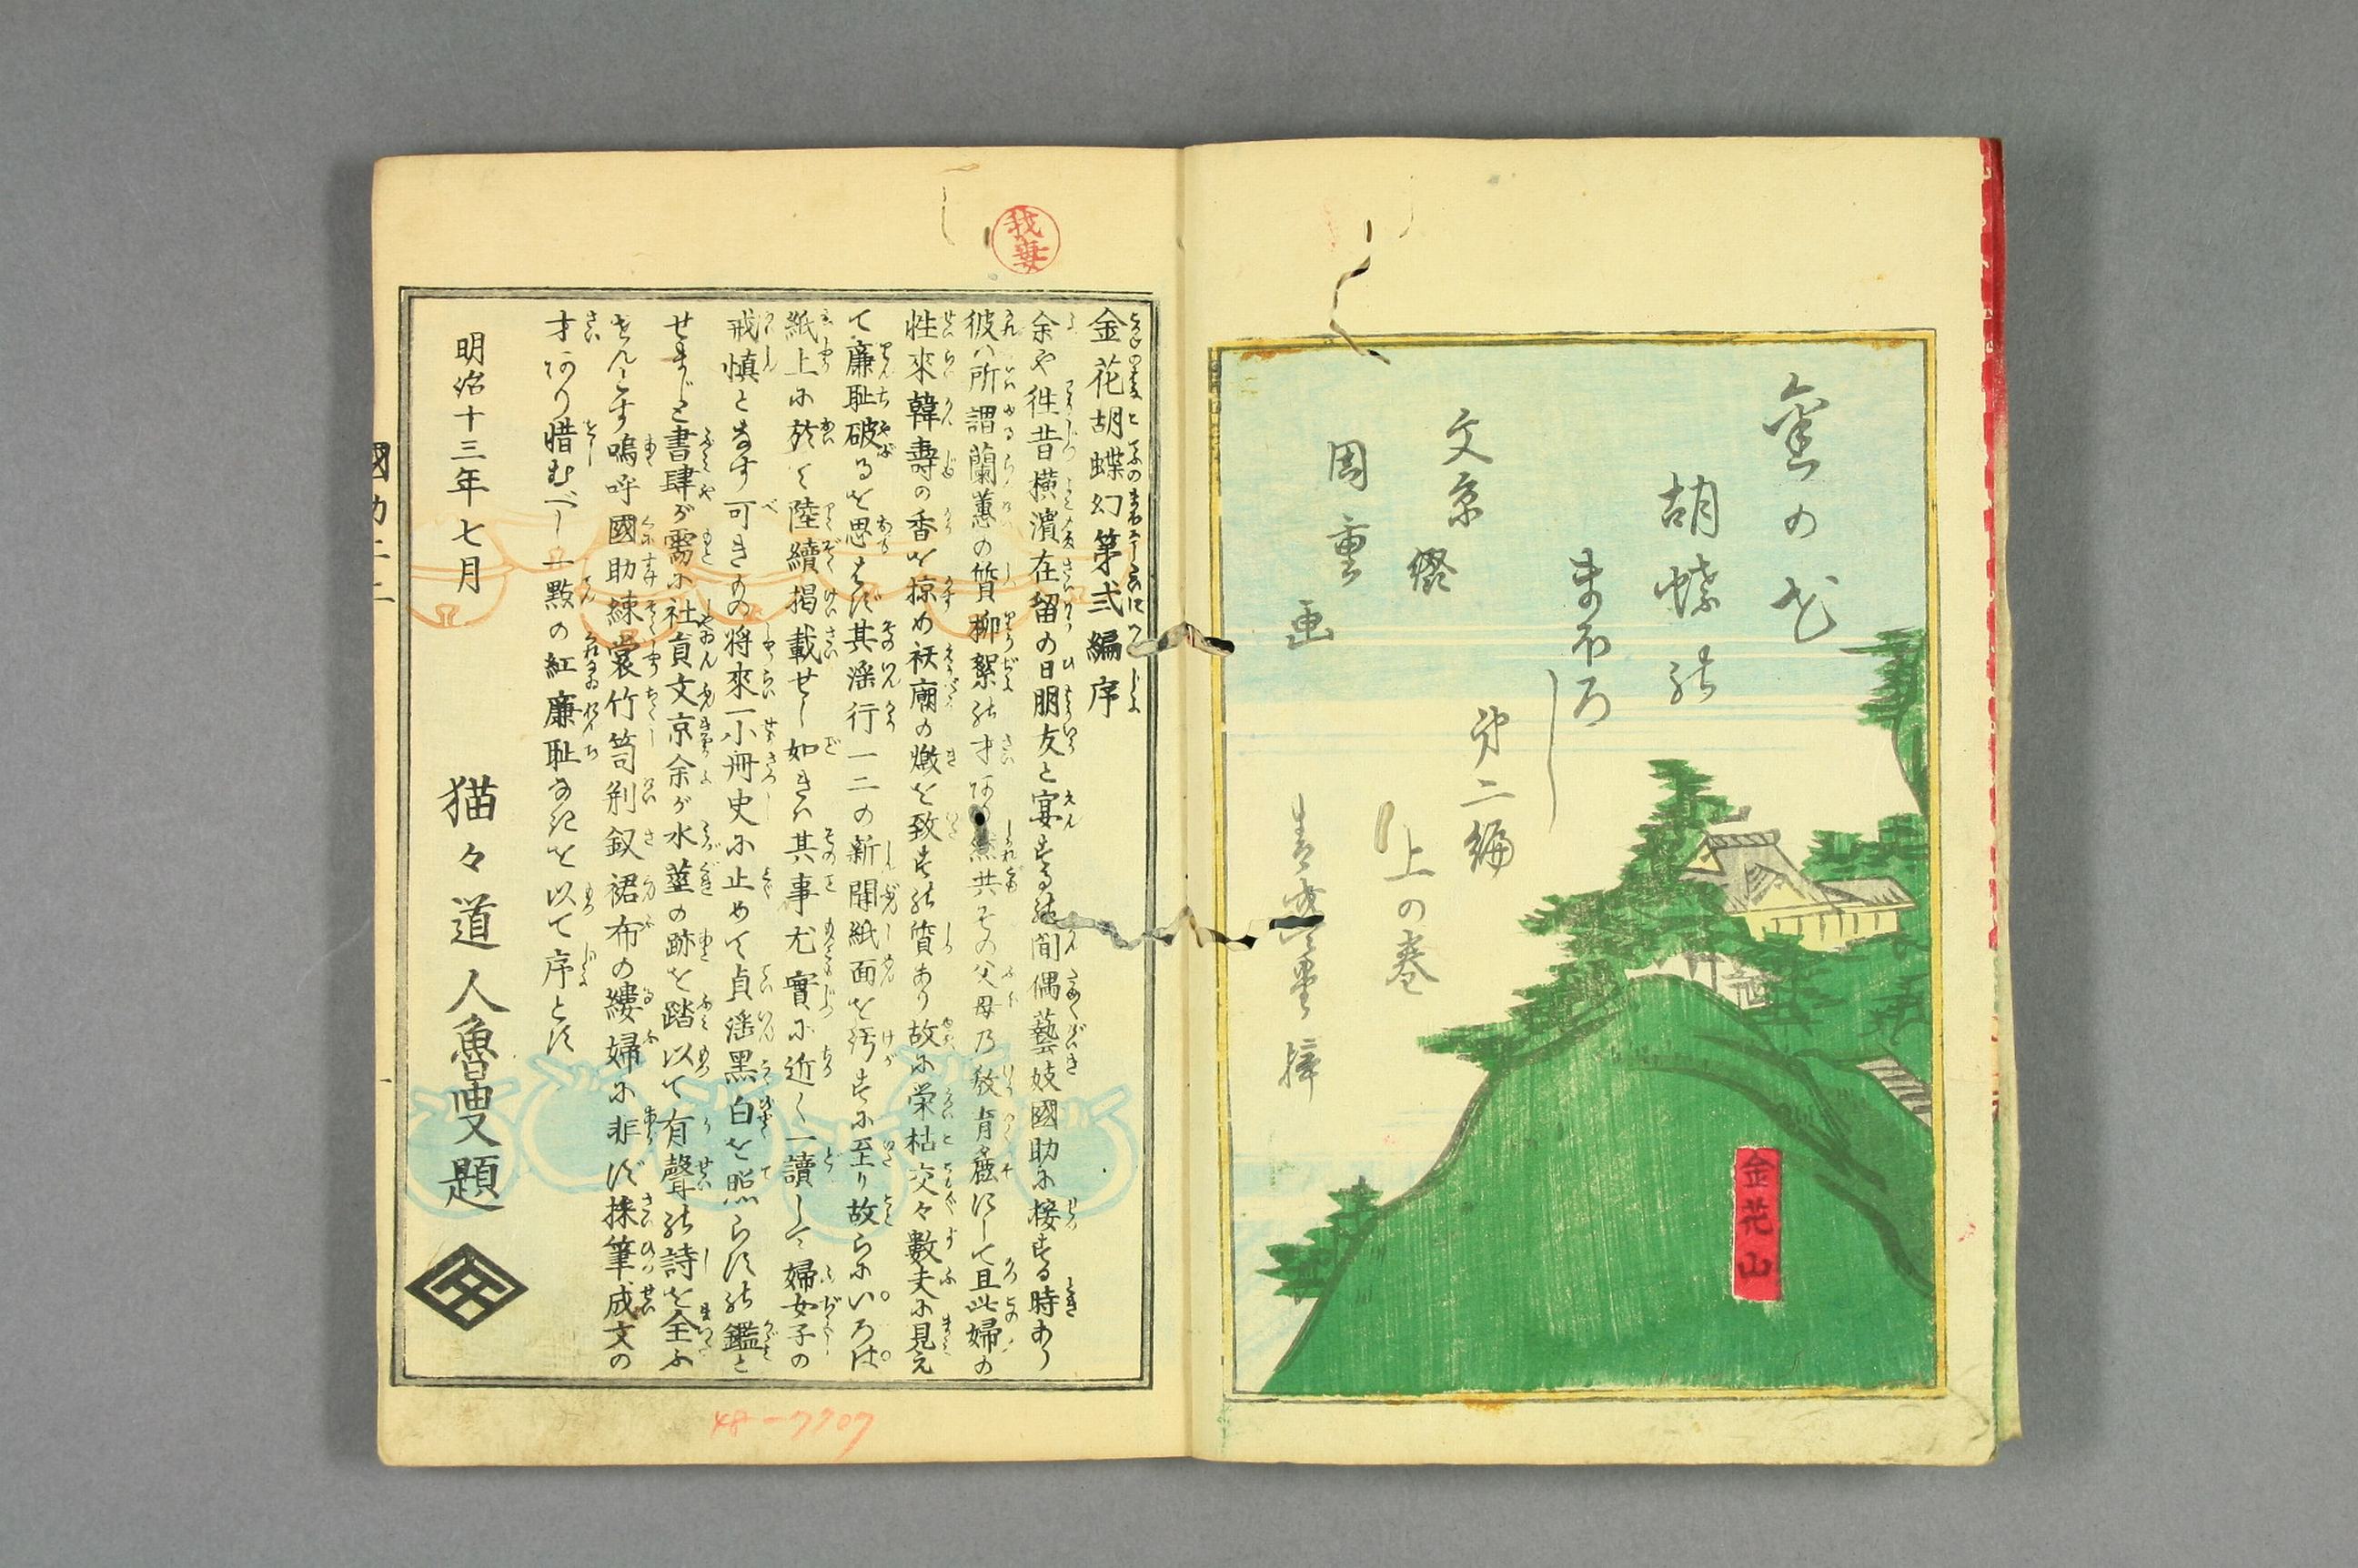 金の花
胡蝶の
まぼろし
第二編
上の巻
文京綴
周重画
青盛堂梓
金花山
我妻
金花胡蝶幻第弍編序
余や徃昔横濱在留の日朋友と宴する の間偶藝妓國助に接する時あり
彼ハ所謂蘭蕙の質柳絮の才 然共その父母乃敎育麁にして且此婦の
性來韓壽の香を掠め祅廟の㷸を致すの質あり故に栄枯交々數夫に見え
て廉耻破るを思はず其滛行一二の新聞紙面を汚すに至り故らにいろは
紙上に於て陸續掲載せし如きハ其事尤實に近く一讀して婦女子の
戒慎となす可きの将來一小冊史に止めて貞滛黒白を照らすの鑑と
せまじと書肆が需に社員文京余が水莖の跡を踏以て有聲の詩を全ふ
せんとす嗚呼國助練裳竹笥荊釵裙布の縷婦に非ず採筆成文の
才あり惜むべし一點の紅廉耻なきを以て序とす
明治十三年七月
猫々道人魯叟題
國助二
一
48-7707